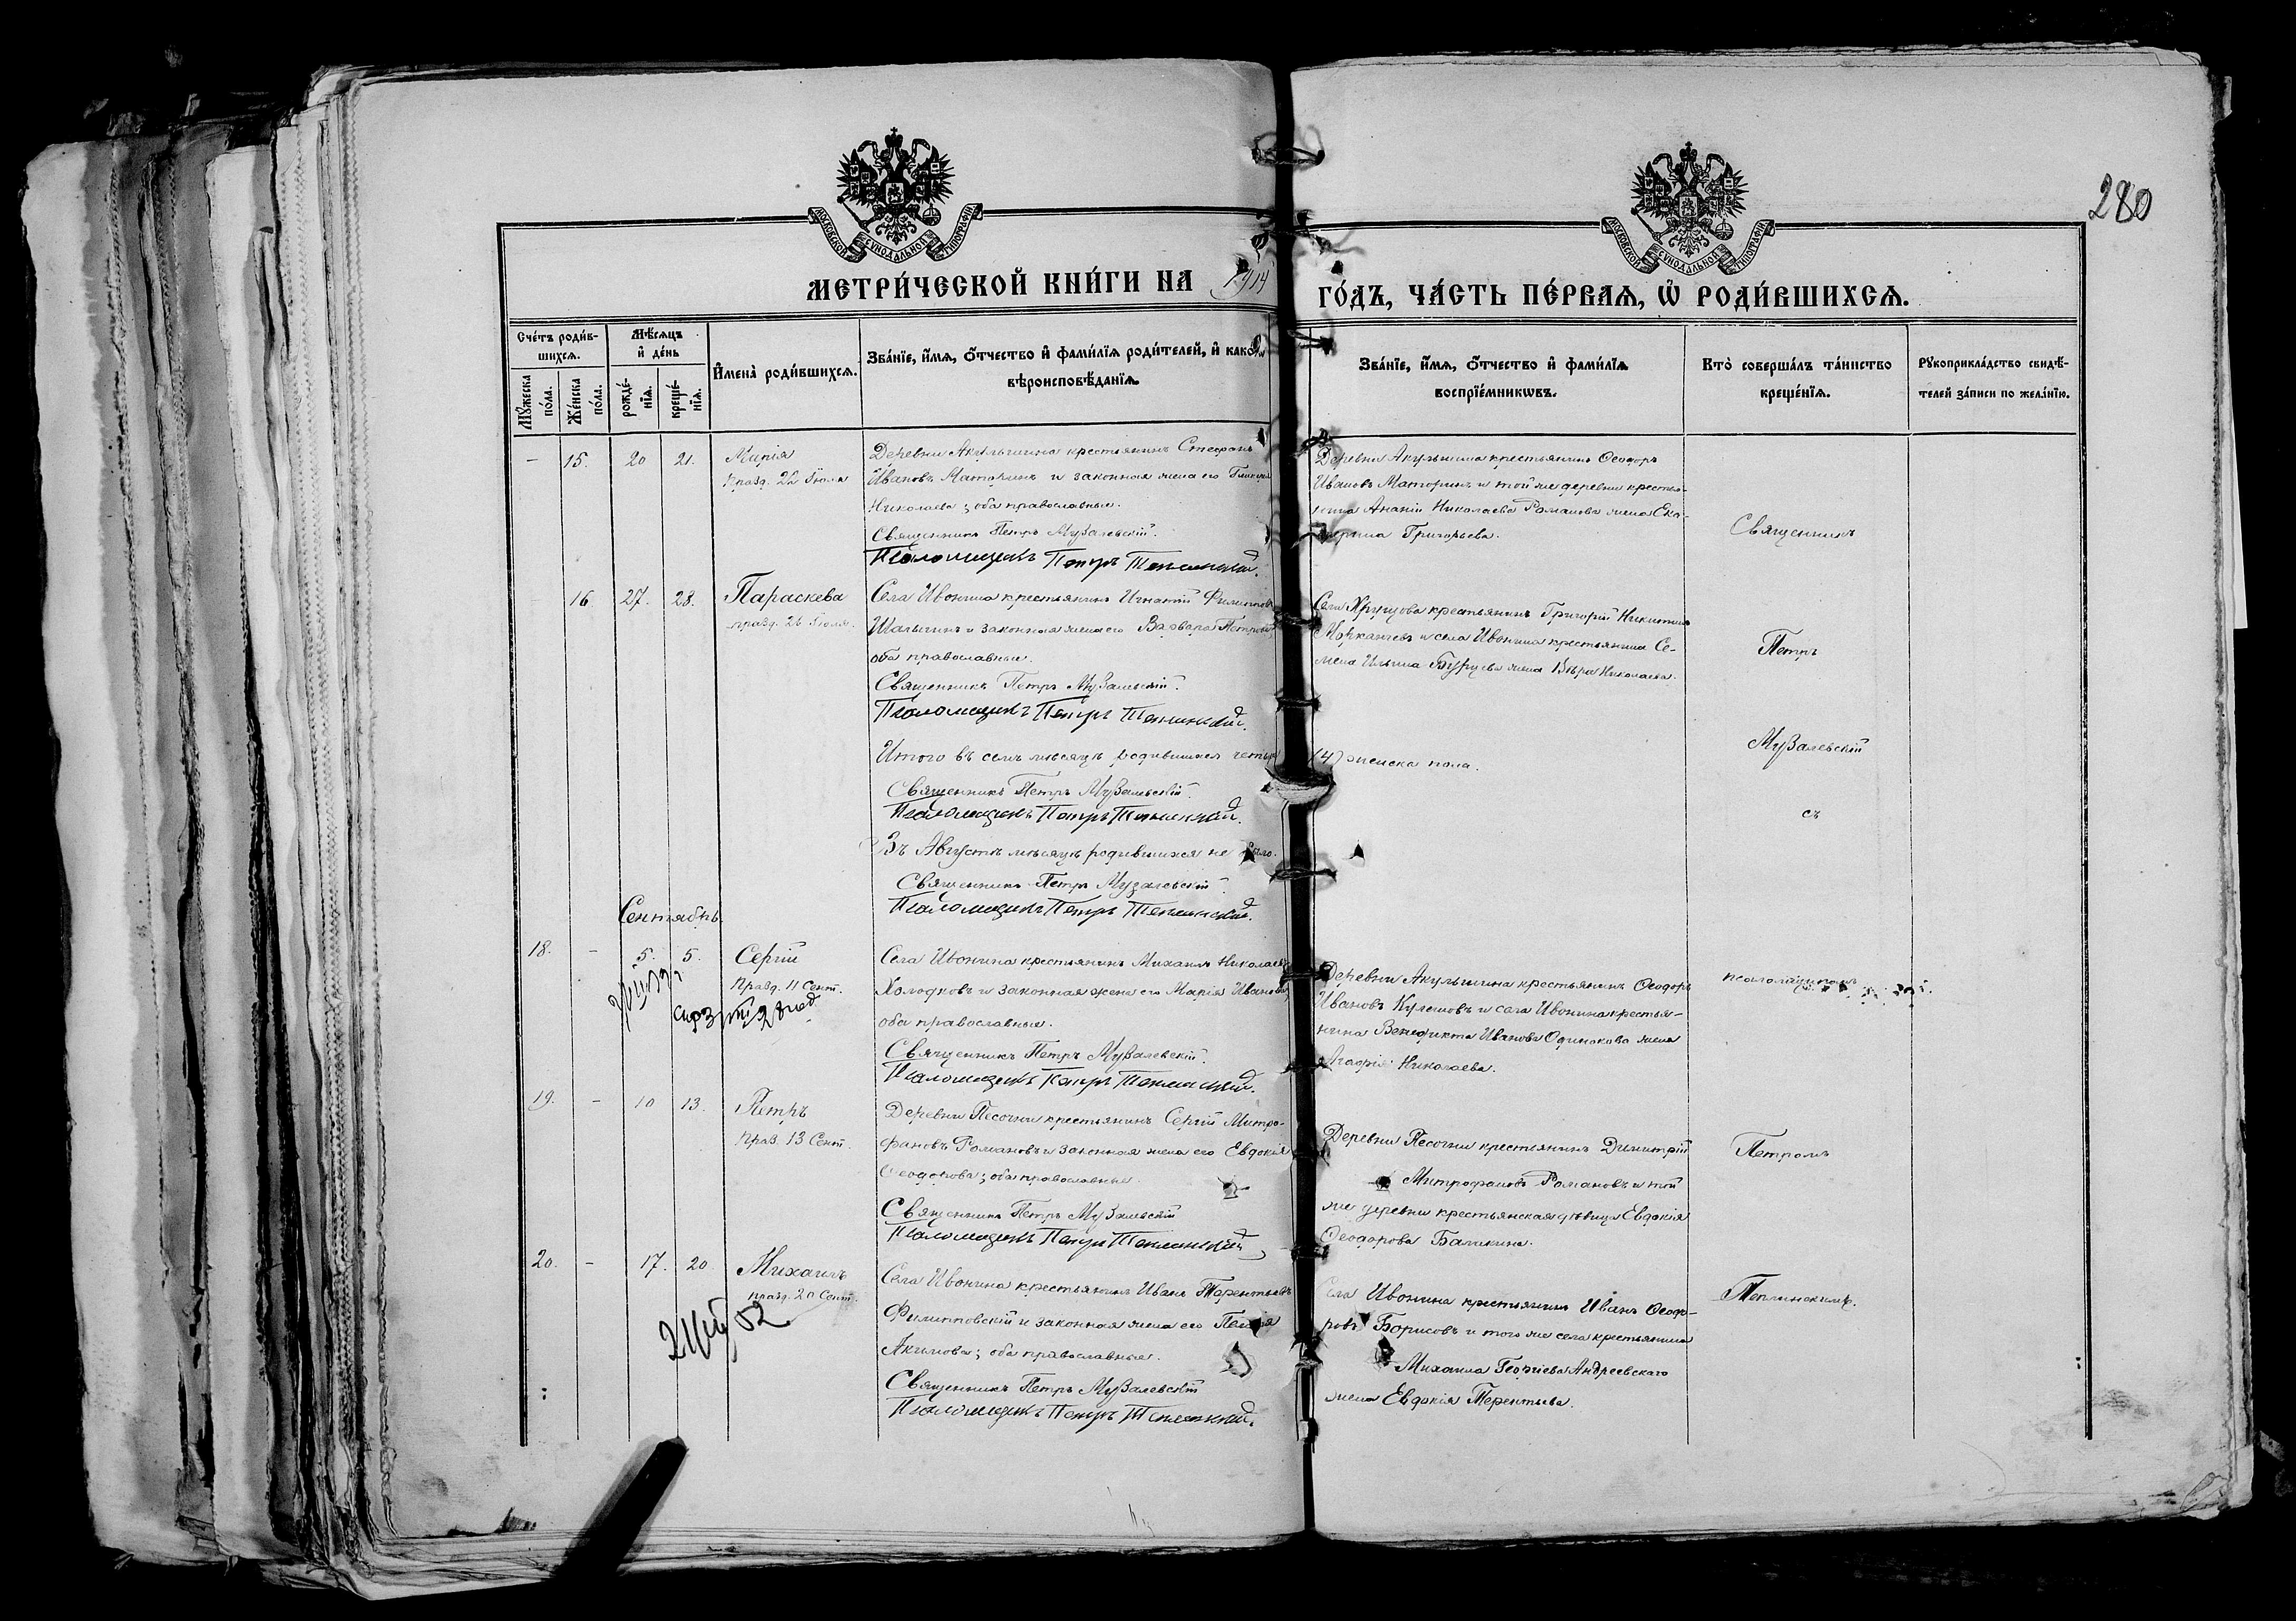 280
МОСКОВСКОЙ СУНОДАЛЬНОЙ ТИПОГРАФІИ
МОСКОВСКОЙ СУНОДАЛЬНОЙ ТИПОГРАФІИ
МЕТРИ́ЧЕСКОЙ КНИ́ГИ НА 1914 ГО́ДЪ, ЧА́СТЬ ПЕ́РВАѦ, Ѽ РОДИ́ВШИХСѦ.
Сче́тъ роди́в-
шихсѧ.
Мѣ́сѧцъ
и де́нь
Мꙋ́жеска
по́ла.
Же́нска
по́ла.
рожде́-
нїѧ.
креще́-
нїѧ.
И҆мена̀ роди́вшихсѧ.
Зва́нїе, и҆́мѧ, ѻ҆́тчество и҆ фами́лїѧ роди́телей, и҆ како́гѡ
вѣроисповѣ́данїѧ.
Зва́нїе, и҆́мѧ, ѻ҆́тчество и҆ фами́лїѧ
воспрїе́мникѡвъ.
Кто̀ соверша́лъ та́инство
креще́нїѧ.
Рꙋкоприкла́дство свидѣ́-
телей за́писи по жела́нїю.
- 15. 20 21. Марія
празд. 22 Іюля
Деревни Акульшина крестьянинъ Стефанъ
Ивановъ Маторинъ и законная жена его
Николаева; оба православные.
Священникъ Петръ Музалевскій.
Псаломщикъ Петръ Теплинскій.
Деревни Акульшина крестьянинъ Ѳеодоръ
Ивановъ Маторинъ и той же деревни крестья-
нина Ананіи Николаева Романова жена Ека-
терина Григорьева.
Священникъ
16 27. 28. Параскева
празд. 28 Іюля.
Села Ивонина крестьянинъ Игнатій Филиппов
и законная жена его Варвара Петрова
оба православные.
Священникъ Петръ Музалевскій.
Псаломщикъ Петръ Теплинскій.
Села крестьянинъ Григорій Никитинъ
и села Ивонина крестьянина Се-
мена Ильина Бурцева жена Вѣра Николаева.
Петръ
Итого въ семъ мѣсяцѣ родившихся четыре (4) женска пола.
Священникъ Петръ Музалевскій.
Псаломщикъ Петръ Теплинскій.
Музалевскій
съ
Въ Августѣ мѣсяцѣ родившихся не было.
Священникъ Петръ Музалевскій.
Псаломщикъ Петръ Теплинскій.
Сентябрь.
18. - 5. 5. Сергій
празд. 11 Сент.
Села Ивонина крестьянинъ Михаилъ Николаевъ
Холодковъ и законная жена его Марія Иванова
оба православные.
Священникъ Петръ Музалевскій.
Псаломщикъ Петръ Теплинскій.
Деревни Акульшина крестьянинъ Ѳеодоръ
Ивановъ Кулешовъ и села Ивонина крестья-
нина Венедикта Иванова Одинокова жена
Агафія Николаева.
псаломщикомъ
19. - 10 13. Петръ
праз. 13 Сент.
Деревни Песочни крестьянинъ Сергій Митро-
фановъ Романовъ и законная жена его Евдокія
Ѳеодорова; оба православные.
Священникъ Петръ Музалевскій
Псаломщикъ Петръ Теплинскій
Деревни Песочни крестьянинъ Димитрій
Митрофановъ Романовъ и той
же деревни крестьянская дѣвица Евдокія
Ѳеодорова
Петромъ
20. - 17. 20 Михаилъ
празд. 20 Сент.
Села Ивонина крестьянинъ Иванъ Терентьевъ
Филипповскій и законная жена его Пелагія
Акимова; оба православные.
Священникъ Петръ Музалевскій
Псаломщикъ Петръ Теплинскій.
Села Ивонина крестьянинъ Иванъ Ѳеодо-
ровъ Борисовъ и того же села крестьянина
Михаила Георгіева Андреевскаго
жена Евдокія Терентьева.
Теплинскимъ.